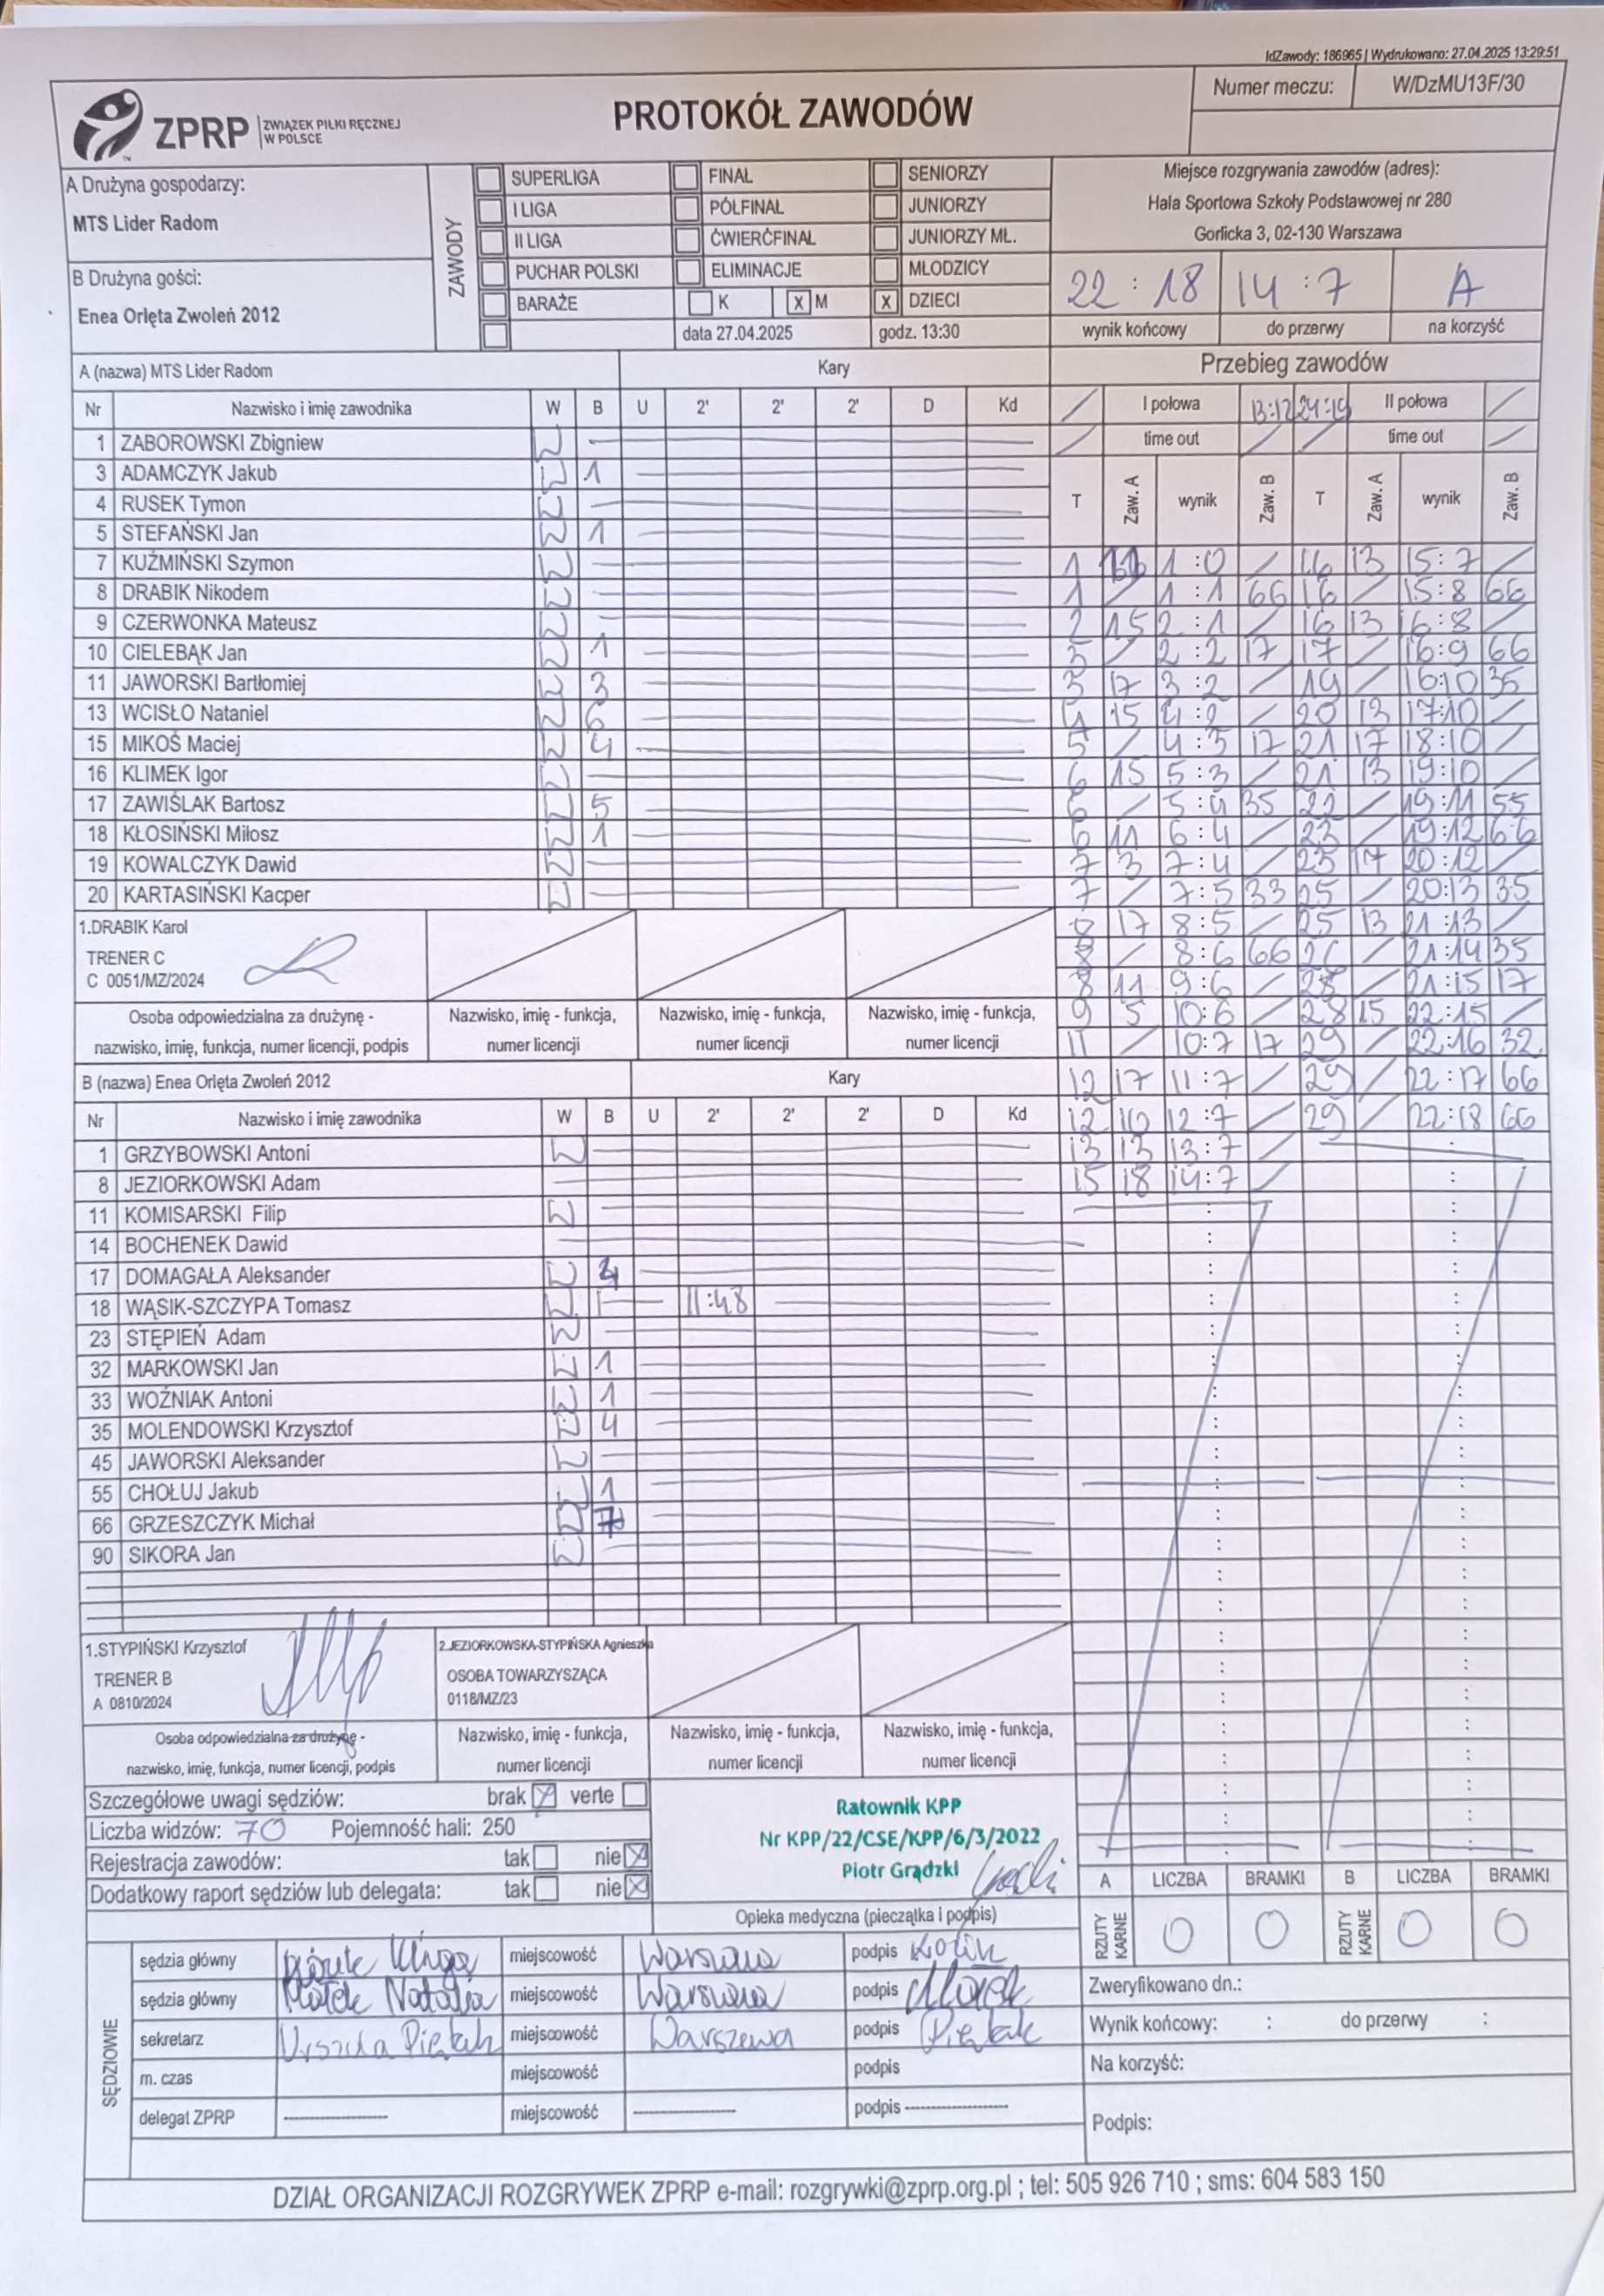 IdZawody: 186965 | Wydrukowano: 27.04.2025 13:29:51
ZPRP ZWIĄZEK PIŁKI RĘCZNEJ W POLSCE
PROTOKÓŁ ZAWODÓW
Numer meczu: W/DzMU13F/30
A Drużyna gospodarzy:
MTS Lider Radom
B Drużyna gości:
Enea Orlęta Zwoleń 2012
ZAWODY
SUPERLIGA FINAŁ SENIORZY
I LIGA PÓŁFINAŁ JUNIORZY
II LIGA ĆWIERĆFINAŁ JUNIORZY MŁ.
PUCHAR POLSKI ELIMINACJE MŁODZICY
BARAŻE K X M X DZIECI
data 27.04.2025 godz. 13:30
Miejsce rozgrywania zawodów (adres):
Hala Sportowa Szkoły Podstawowej nr 280
Gorlicka 3, 02-130 Warszawa
22 : 18 14 : 7 A
wynik końcowy do przerwy na korzyść
A (nazwa) MTS Lider Radom Kary
Nr Nazwisko i imię zawodnika W B U 2' 2' 2' D Kd
1 ZABOROWSKI Zbigniew W
3 ADAMCZYK Jakub W 1
4 RUSEK Tymon W
5 STEFAŃSKI Jan W 1
7 KUŹMIŃSKI Szymon W
8 DRABIK Nikodem W
9 CZERWONKA Mateusz W
10 CIELEBĄK Jan W 1
11 JAWORSKI Bartłomiej W 3
13 WCISŁO Nataniel W 6
15 MIKOŚ Maciej W 4
16 KLIMEK Igor W
17 ZAWIŚLAK Bartosz W 5
18 KŁOSIŃSKI Miłosz W 1
19 KOWALCZYK Dawid W
20 KARTASIŃSKI Kacper W
1.DRABIK Karol
TRENER C
C 0051/MZ/2024
Osoba odpowiedzialna za drużynę - nazwisko, imię, funkcja, numer licencji, podpis
Nazwisko, imię - funkcja, numer licencji
Nazwisko, imię - funkcja, numer licencji
Nazwisko, imię - funkcja, numer licencji
B (nazwa) Enea Orlęta Zwoleń 2012 Kary
Nr Nazwisko i imię zawodnika W B U 2' 2' 2' D Kd
1 GRZYBOWSKI Antoni W
8 JEZIORKOWSKI Adam
11 KOMISARSKI Filip W
14 BOCHENEK Dawid
17 DOMAGAŁA Aleksander W 4
18 WĄSIK-SZCZYPA Tomasz W 11:48
23 STĘPIEŃ Adam W
32 MARKOWSKI Jan W 1
33 WOŹNIAK Antoni W 1
35 MOLENDOWSKI Krzysztof W 4
45 JAWORSKI Aleksander W
55 CHOŁUJ Jakub W 1
66 GRZESZCZYK Michał W 7
90 SIKORA Jan W
1.STYPIŃSKI Krzysztof
TRENER B
A 0810/2024
2.JEZIORKOWSKA-STYPIŃSKA Agnieszka
OSOBA TOWARZYSZĄCA
0118/MZ/23
Osoba odpowiedzialna za drużynę - nazwisko, imię, funkcja, numer licencji, podpis
Nazwisko, imię - funkcja, numer licencji
Nazwisko, imię - funkcja, numer licencji
Nazwisko, imię - funkcja, numer licencji
Przebieg zawodów
/ I połowa 13:12 24:19 II połowa /
/ time out / / time out /
T Zaw. A wynik Zaw. B T Zaw. A wynik Zaw. B
1 11 1:0 / 16 13 15:7 /
1 / 1:1 66 16 / 15:8 66
2 15 2:1 / 16 13 16:8 /
3 / 2:2 17 17 / 16:9 66
3 17 3:2 / 19 / 16:10 35
4 15 4:2 / 20 13 17:10 /
5 / 4:3 17 21 17 18:10 /
6 15 5:3 / 21 13 19:10 /
6 / 5:4 35 22 / 19:11 55
6 11 6:4 / 23 / 19:12 66
7 3 7:4 / 23 17 20:12 /
7 / 7:5 33 25 / 20:13 35
8 17 8:5 / 25 13 21:13 /
8 / 8:6 66 26 / 21:14 35
8 11 9:6 / 28 / 21:15 17
9 5 10:6 / 28 15 22:15 /
11 / 10:7 17 29 / 22:16 32
12 17 11:7 / 29 / 22:17 66
12 10 12:7 / 29 / 22:18 66
13 13 13:7 /
15 18 14:7 /
Szczegółowe uwagi sędziów: brak X verte
Liczba widzów: 70 Pojemność hali: 250
Rejestracja zawodów: tak nie X
Dodatkowy raport sędziów lub delegata: tak nie X
Ratownik KPP
Nr KPP/22/CSE/KPP/6/3/2022
Piotr Grądzki
Opieka medyczna (pieczątka i podpis)
A LICZBA BRAMKI B LICZBA BRAMKI
RZUTY KARNE 0 0 RZUTY KARNE 0 0
SĘDZIOWIE
sędzia główny Kinga miejscowość Warszawa podpis
sędzia główny Natalia miejscowość Warszawa podpis
sekretarz Urszula Piętak miejscowość Warszawa podpis Piętak
m. czas miejscowość podpis
delegat ZPRP ---------- miejscowość ---------- podpis ----------
Zweryfikowano dn.:
Wynik końcowy: : do przerwy :
Na korzyść:
Podpis:
DZIAŁ ORGANIZACJI ROZGRYWEK ZPRP e-mail: rozgrywki@zprp.org.pl ; tel: 505 926 710 ; sms: 604 583 150